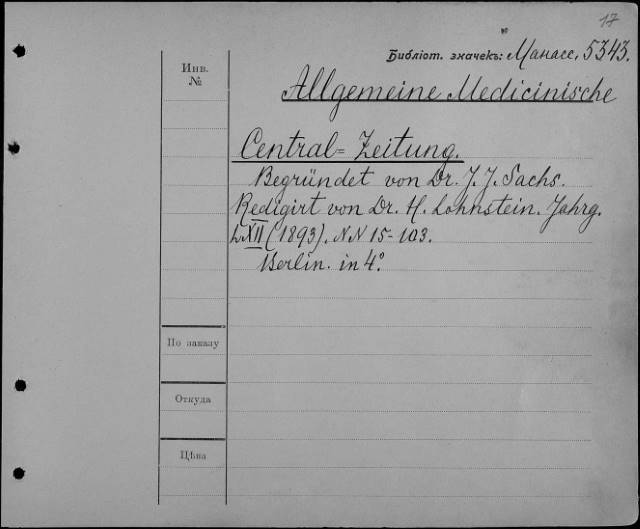 17
Библіот. значекъ: Манасс. 5343.
Инв.
№
Allgemeine Medicinische
Central=Zeitung.
Begründet von Dr. J. J. Sachs.
Redigirt von Dr. H. Lohnstein. Jahrg.
LXII (1893). NN 15-103.
Berlin. in 4°.
По заказу
Откуда
Цѣна